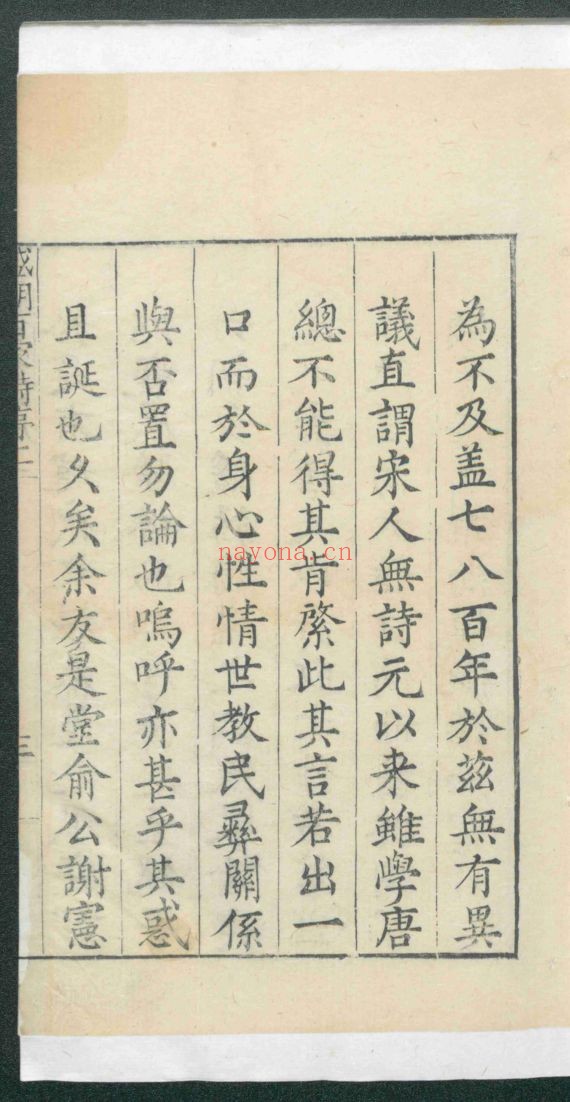 為不及盖七八百年於茲無有異
議直謂宋人無詩元以来雖學唐
總不能得其肯綮此其言若出一
口而於身心性情世教民彝關係
與否置勿論也嗚呼亦甚乎其惑
且誕也久矣余友是堂俞公謝憲
盛明百家詩序二
三
nayona.cn